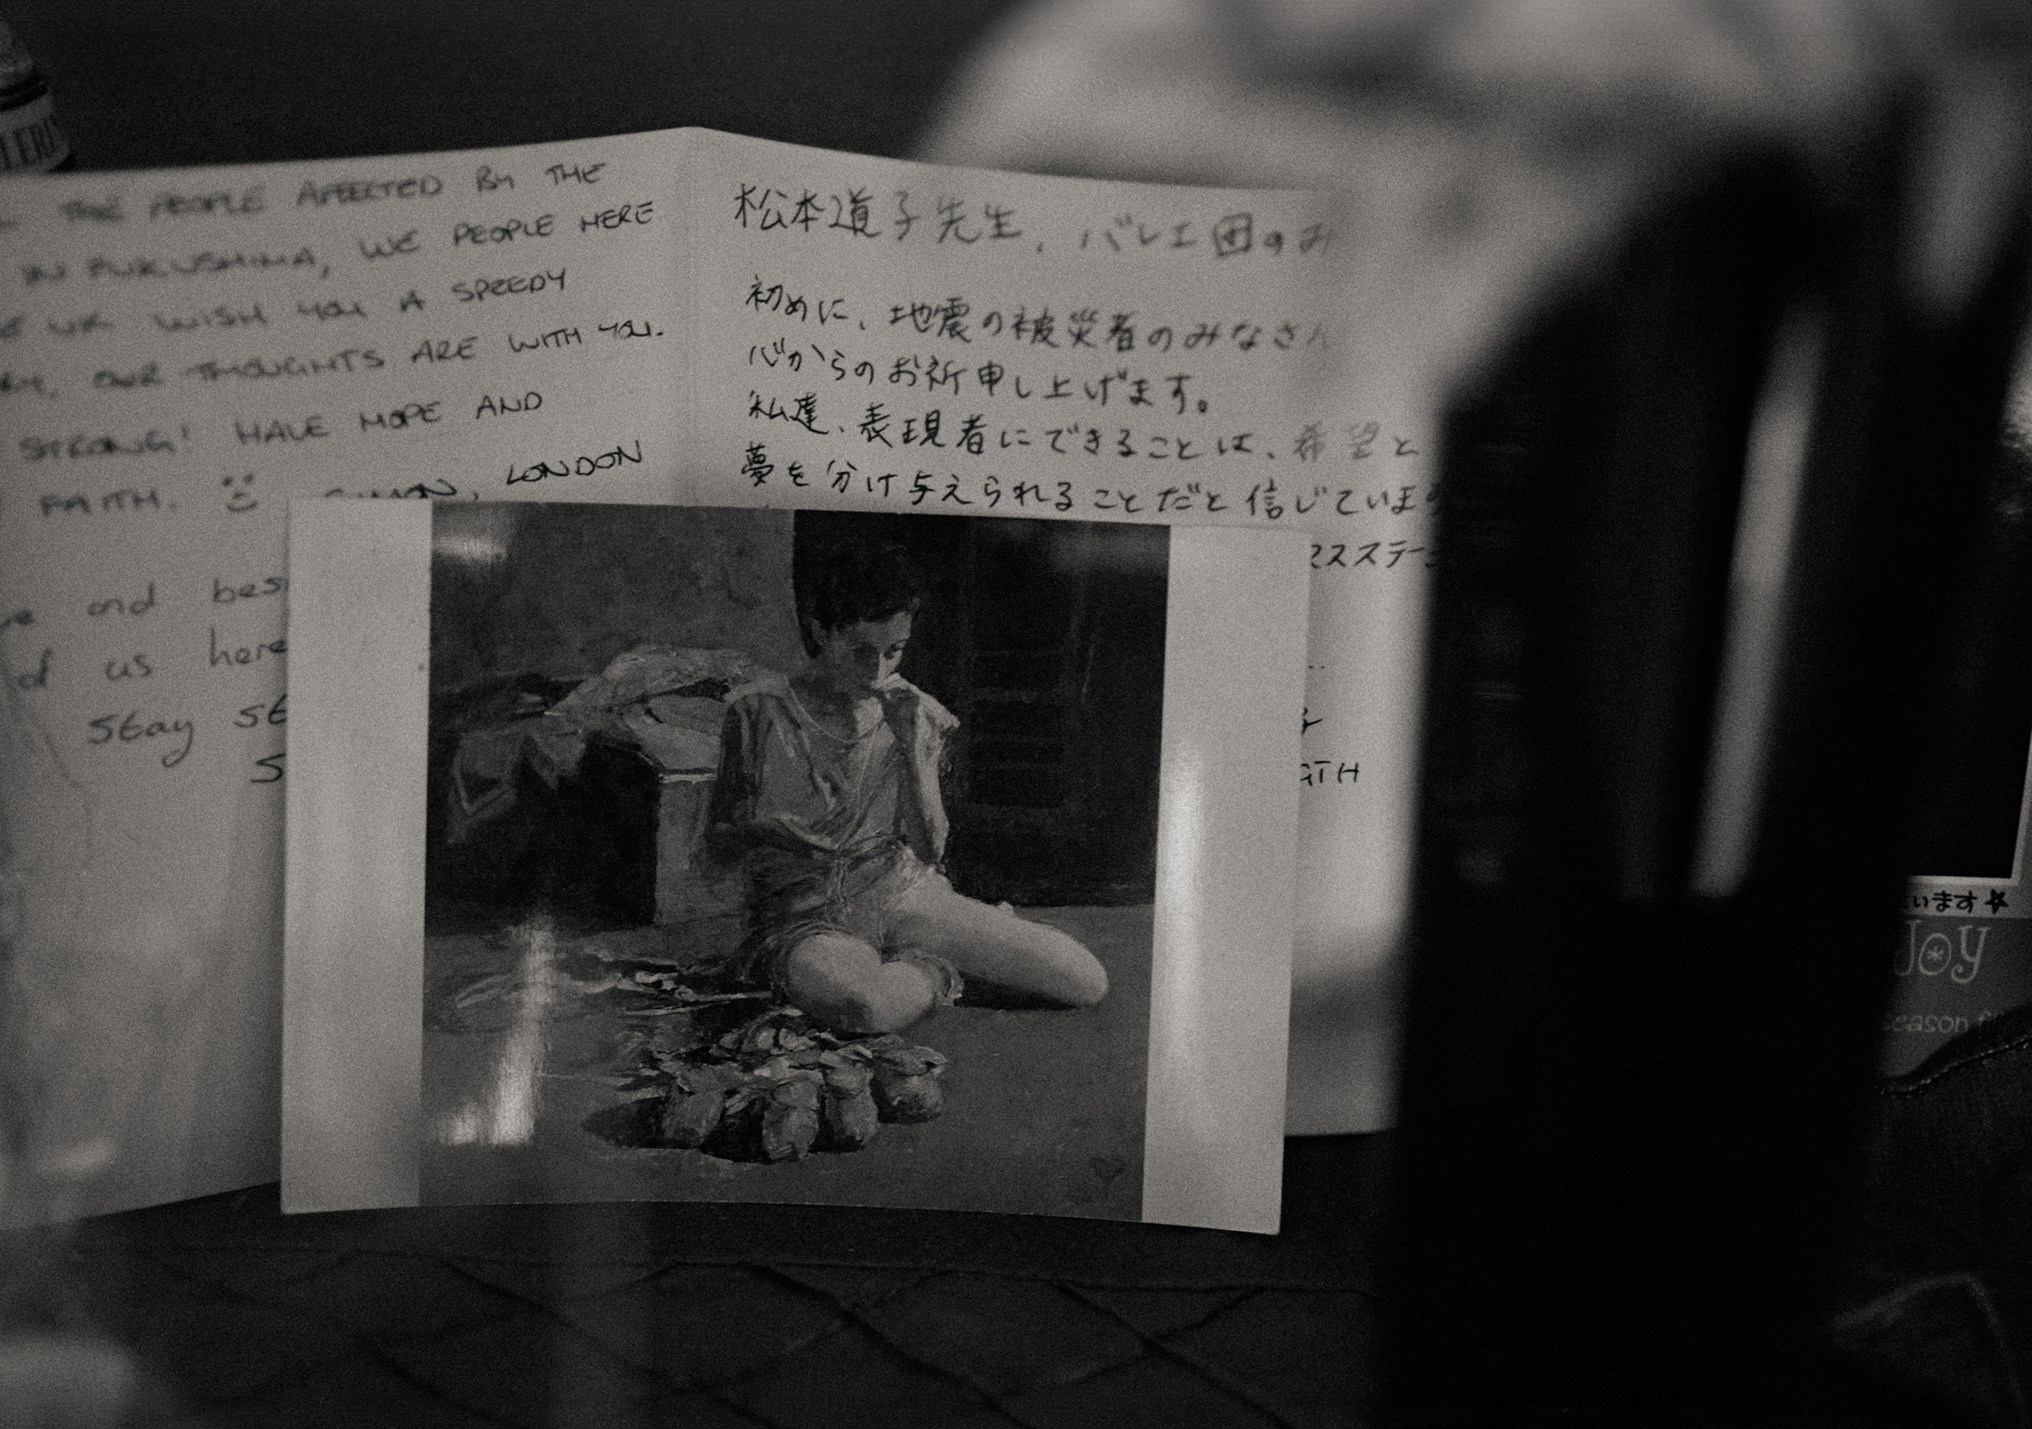 THE PEOPLE AFFECTED BY THE
IN FUKUSHIMA, WE PEOPLE HERE
UK WISH YOU A SPEEDY
OUR THOUGHTS ARE WITH YOU.
STRONG! HAVE HOPE AND
FAITH. LONDON
and
of us here
Stay
松本道子先生、バレエ団のみ
初めに、地震の被災者のみなさん
心からのお祈申し上げます。
私達、表現者にできることは、希望と
夢を分け与えられることだと信じています
います
Joy
season